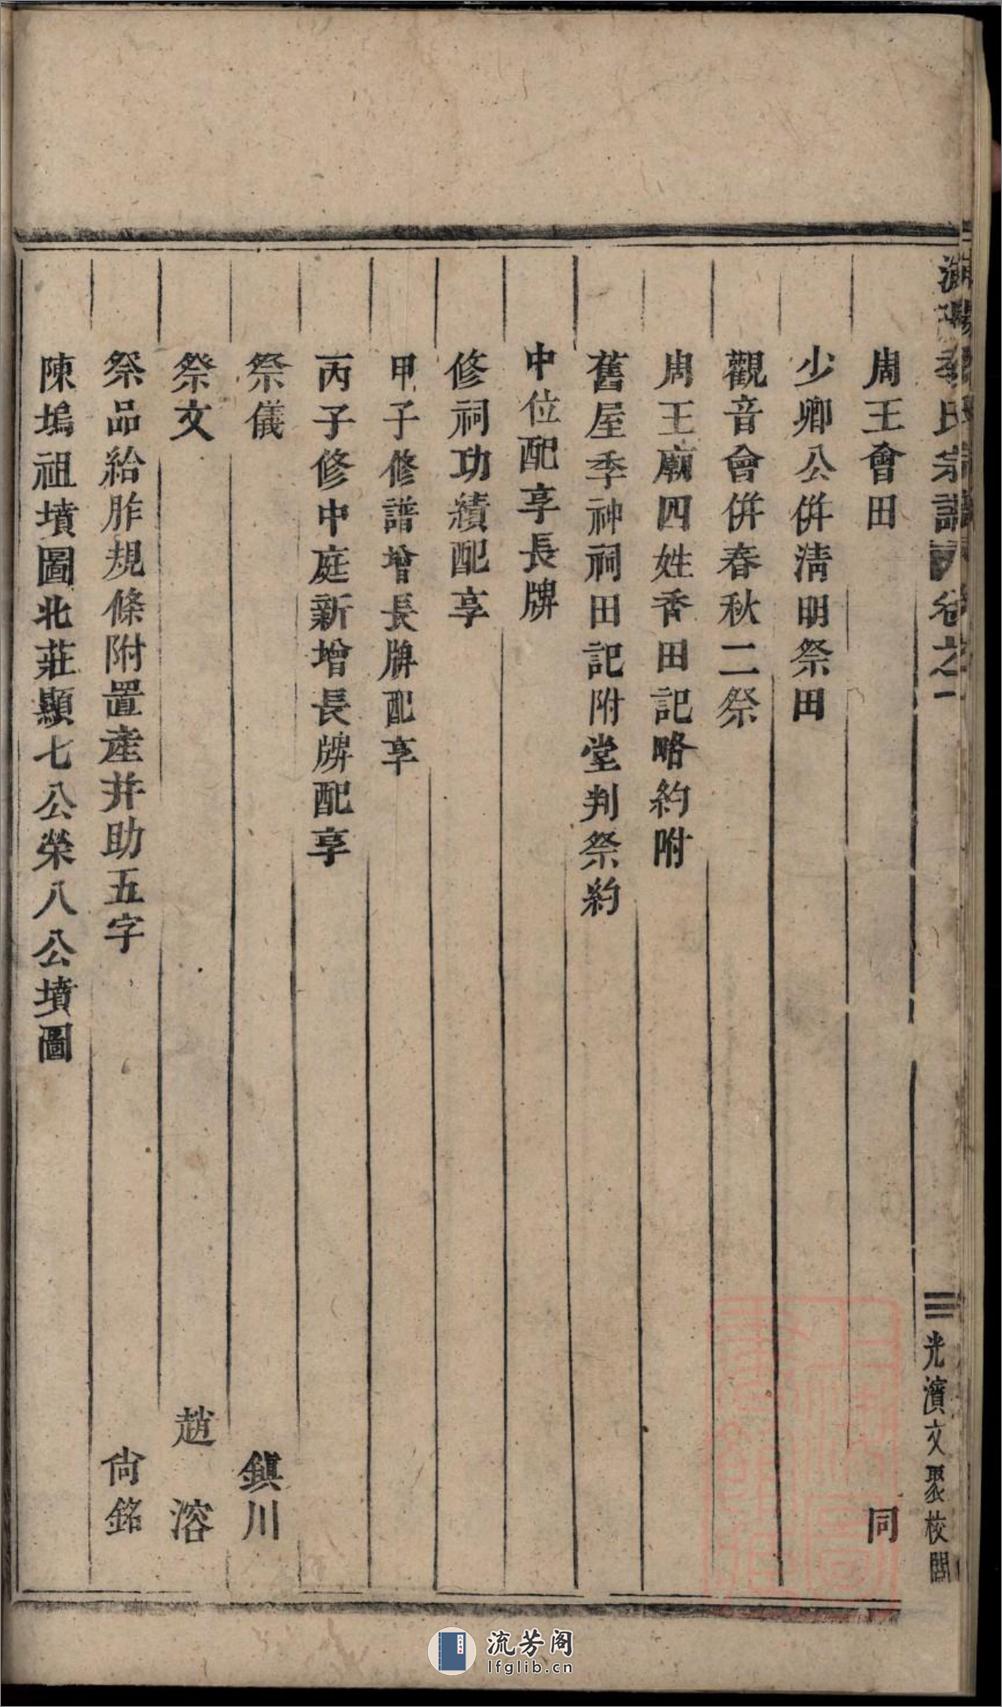 季氏宗譜 卷之一
三 光濱文聚校閱
周王會田 同
少卿公併清明祭田
觀音會併春秋二祭
周王廟四姓香田記略約附
舊屋季神祠田記附堂判祭約
中位配享長牌
修祠功績配享
甲子修譜增長牌配享
丙子修中庭新增長牌配享
祭儀 鎮川
祭文 趙溶
祭品給胙規條附置產并助五字 尚銘
陳塢祖墳圖北莊顯七公榮八公墳圖
流芳阁
lfglib.cn